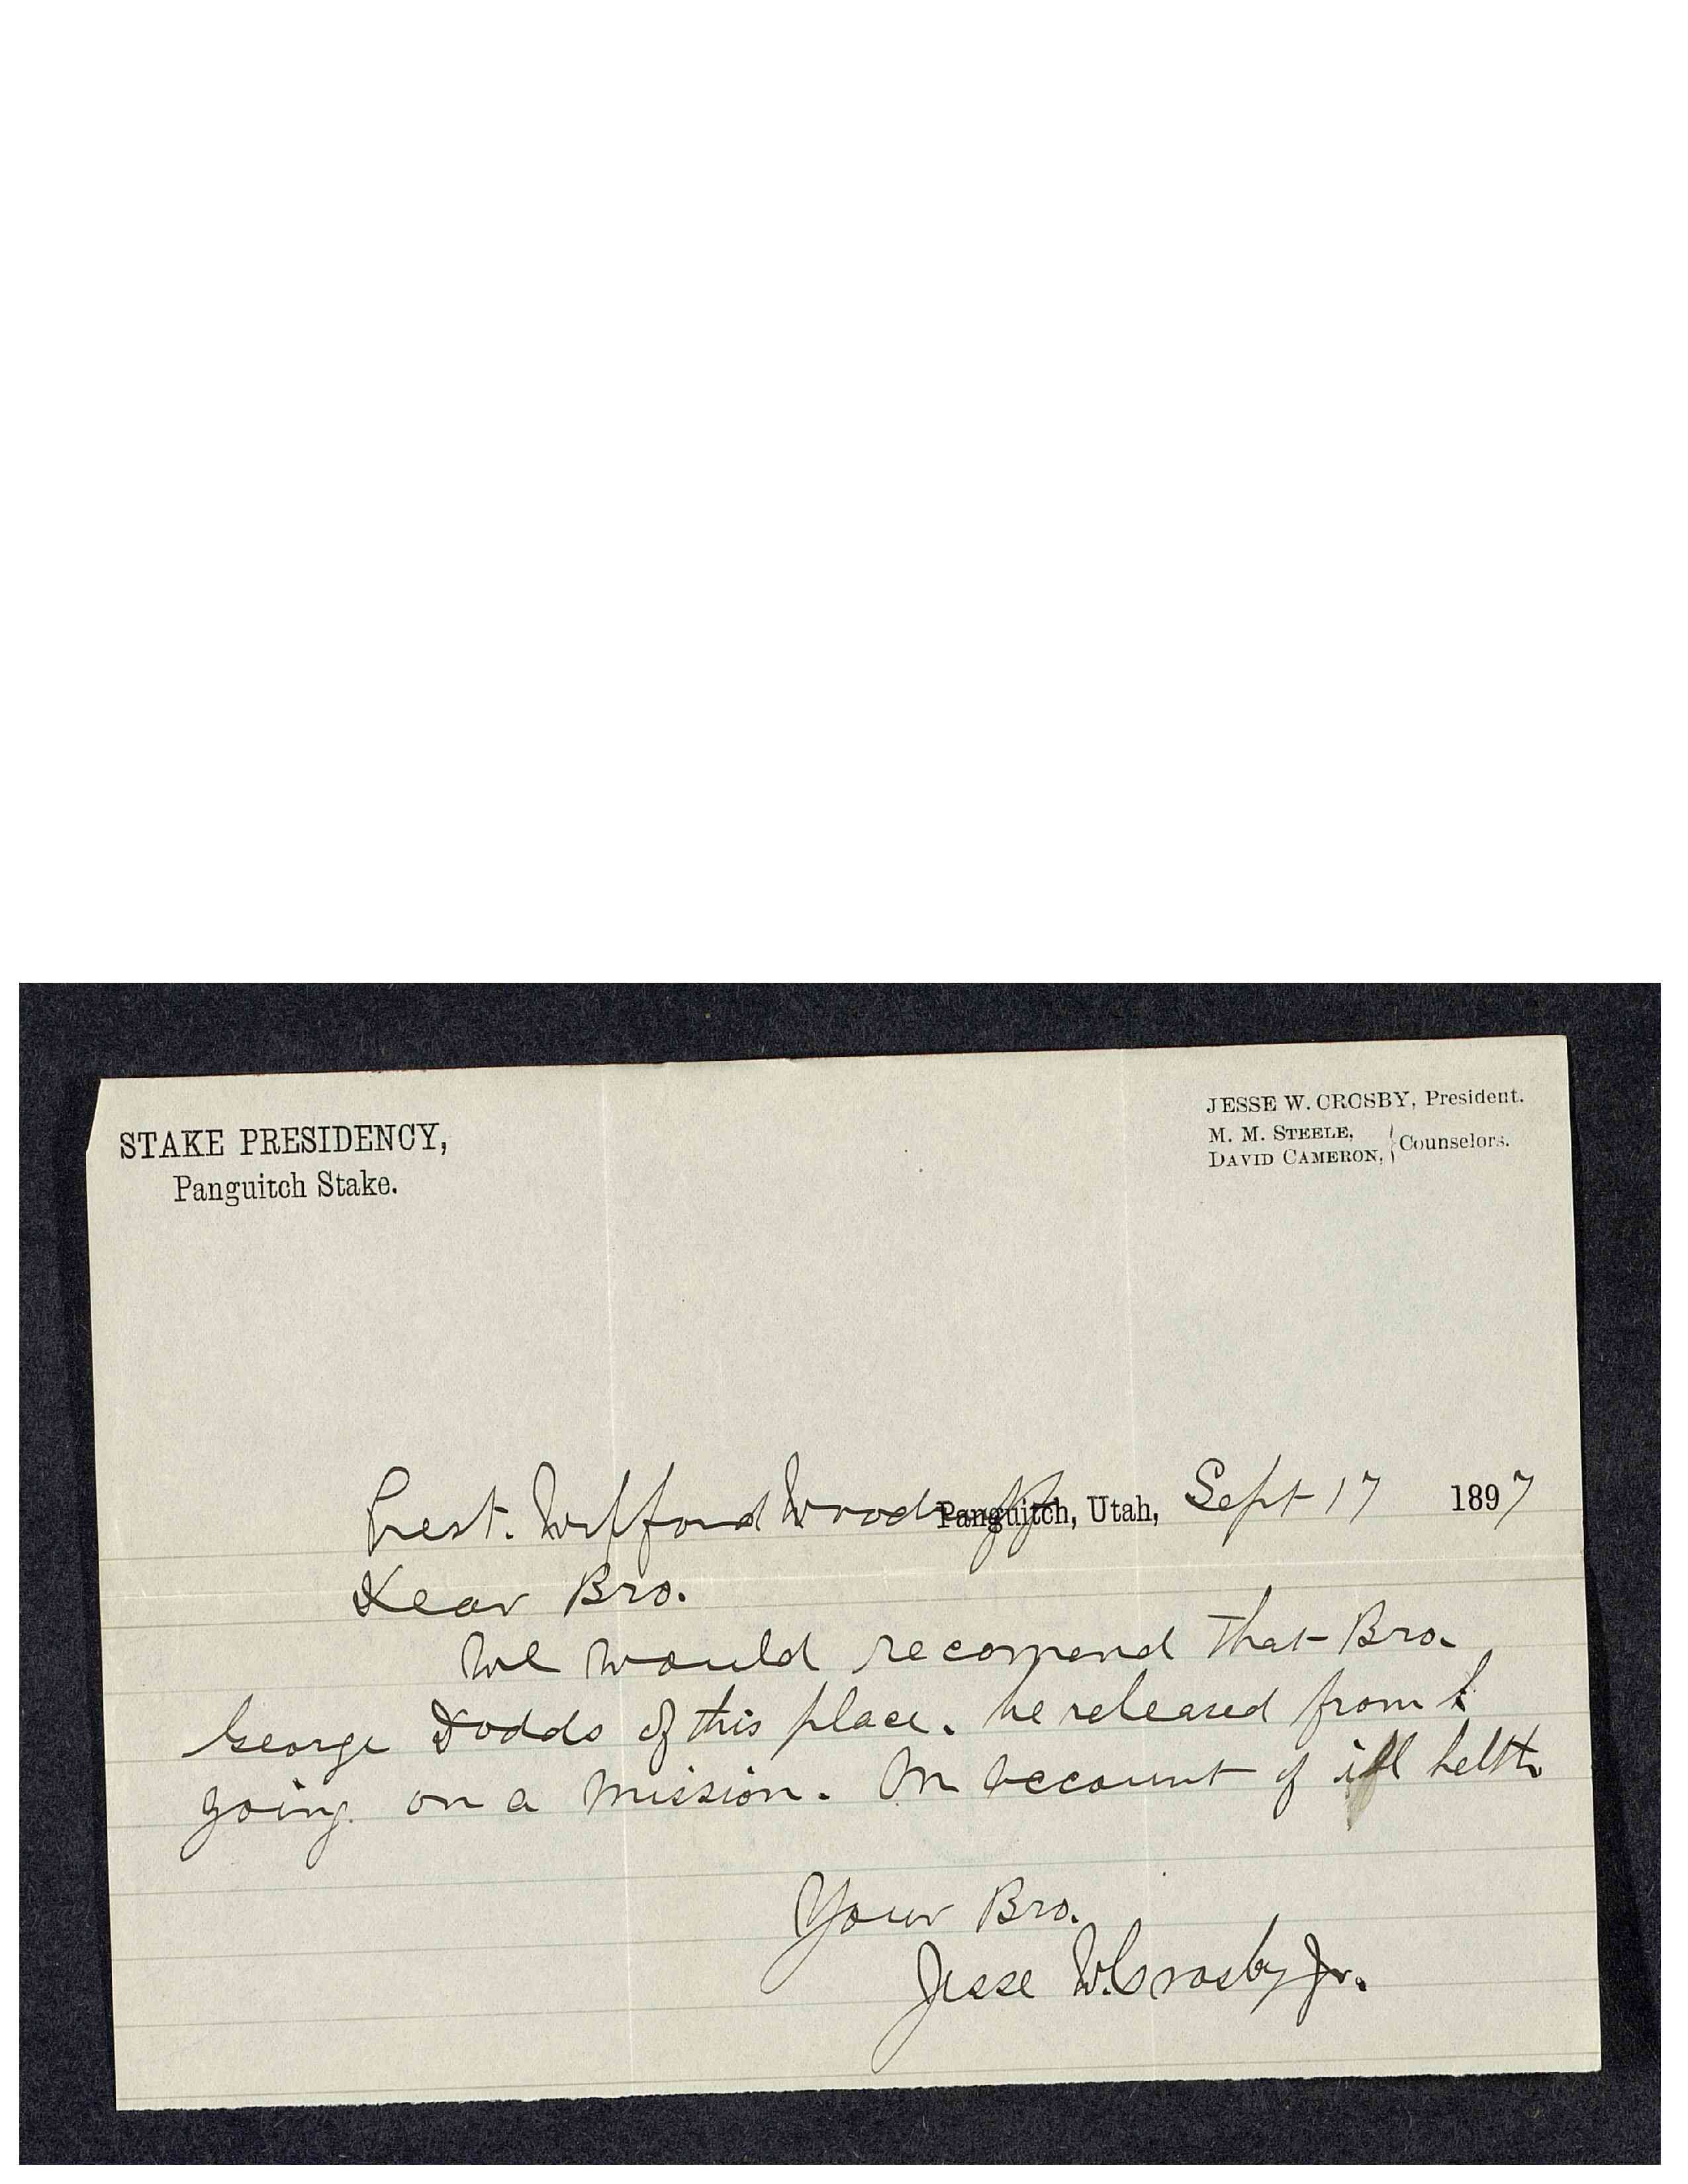 STAKE PRESIDENCY,
Panguitch Stake.
JESSE W. CROSBY, President.
M. M. STEELE,
DAVID CAMERON, } Counselors.
Prest. Wilford Woodruff Panguitch, Utah, Sept 17 1897
Dear Bro.
We would recomend that Bro.
George Dodds of this place. be released from
going on a mission. On account of ill helth.
Your Bro.
Jesse W. Crosby Jr.